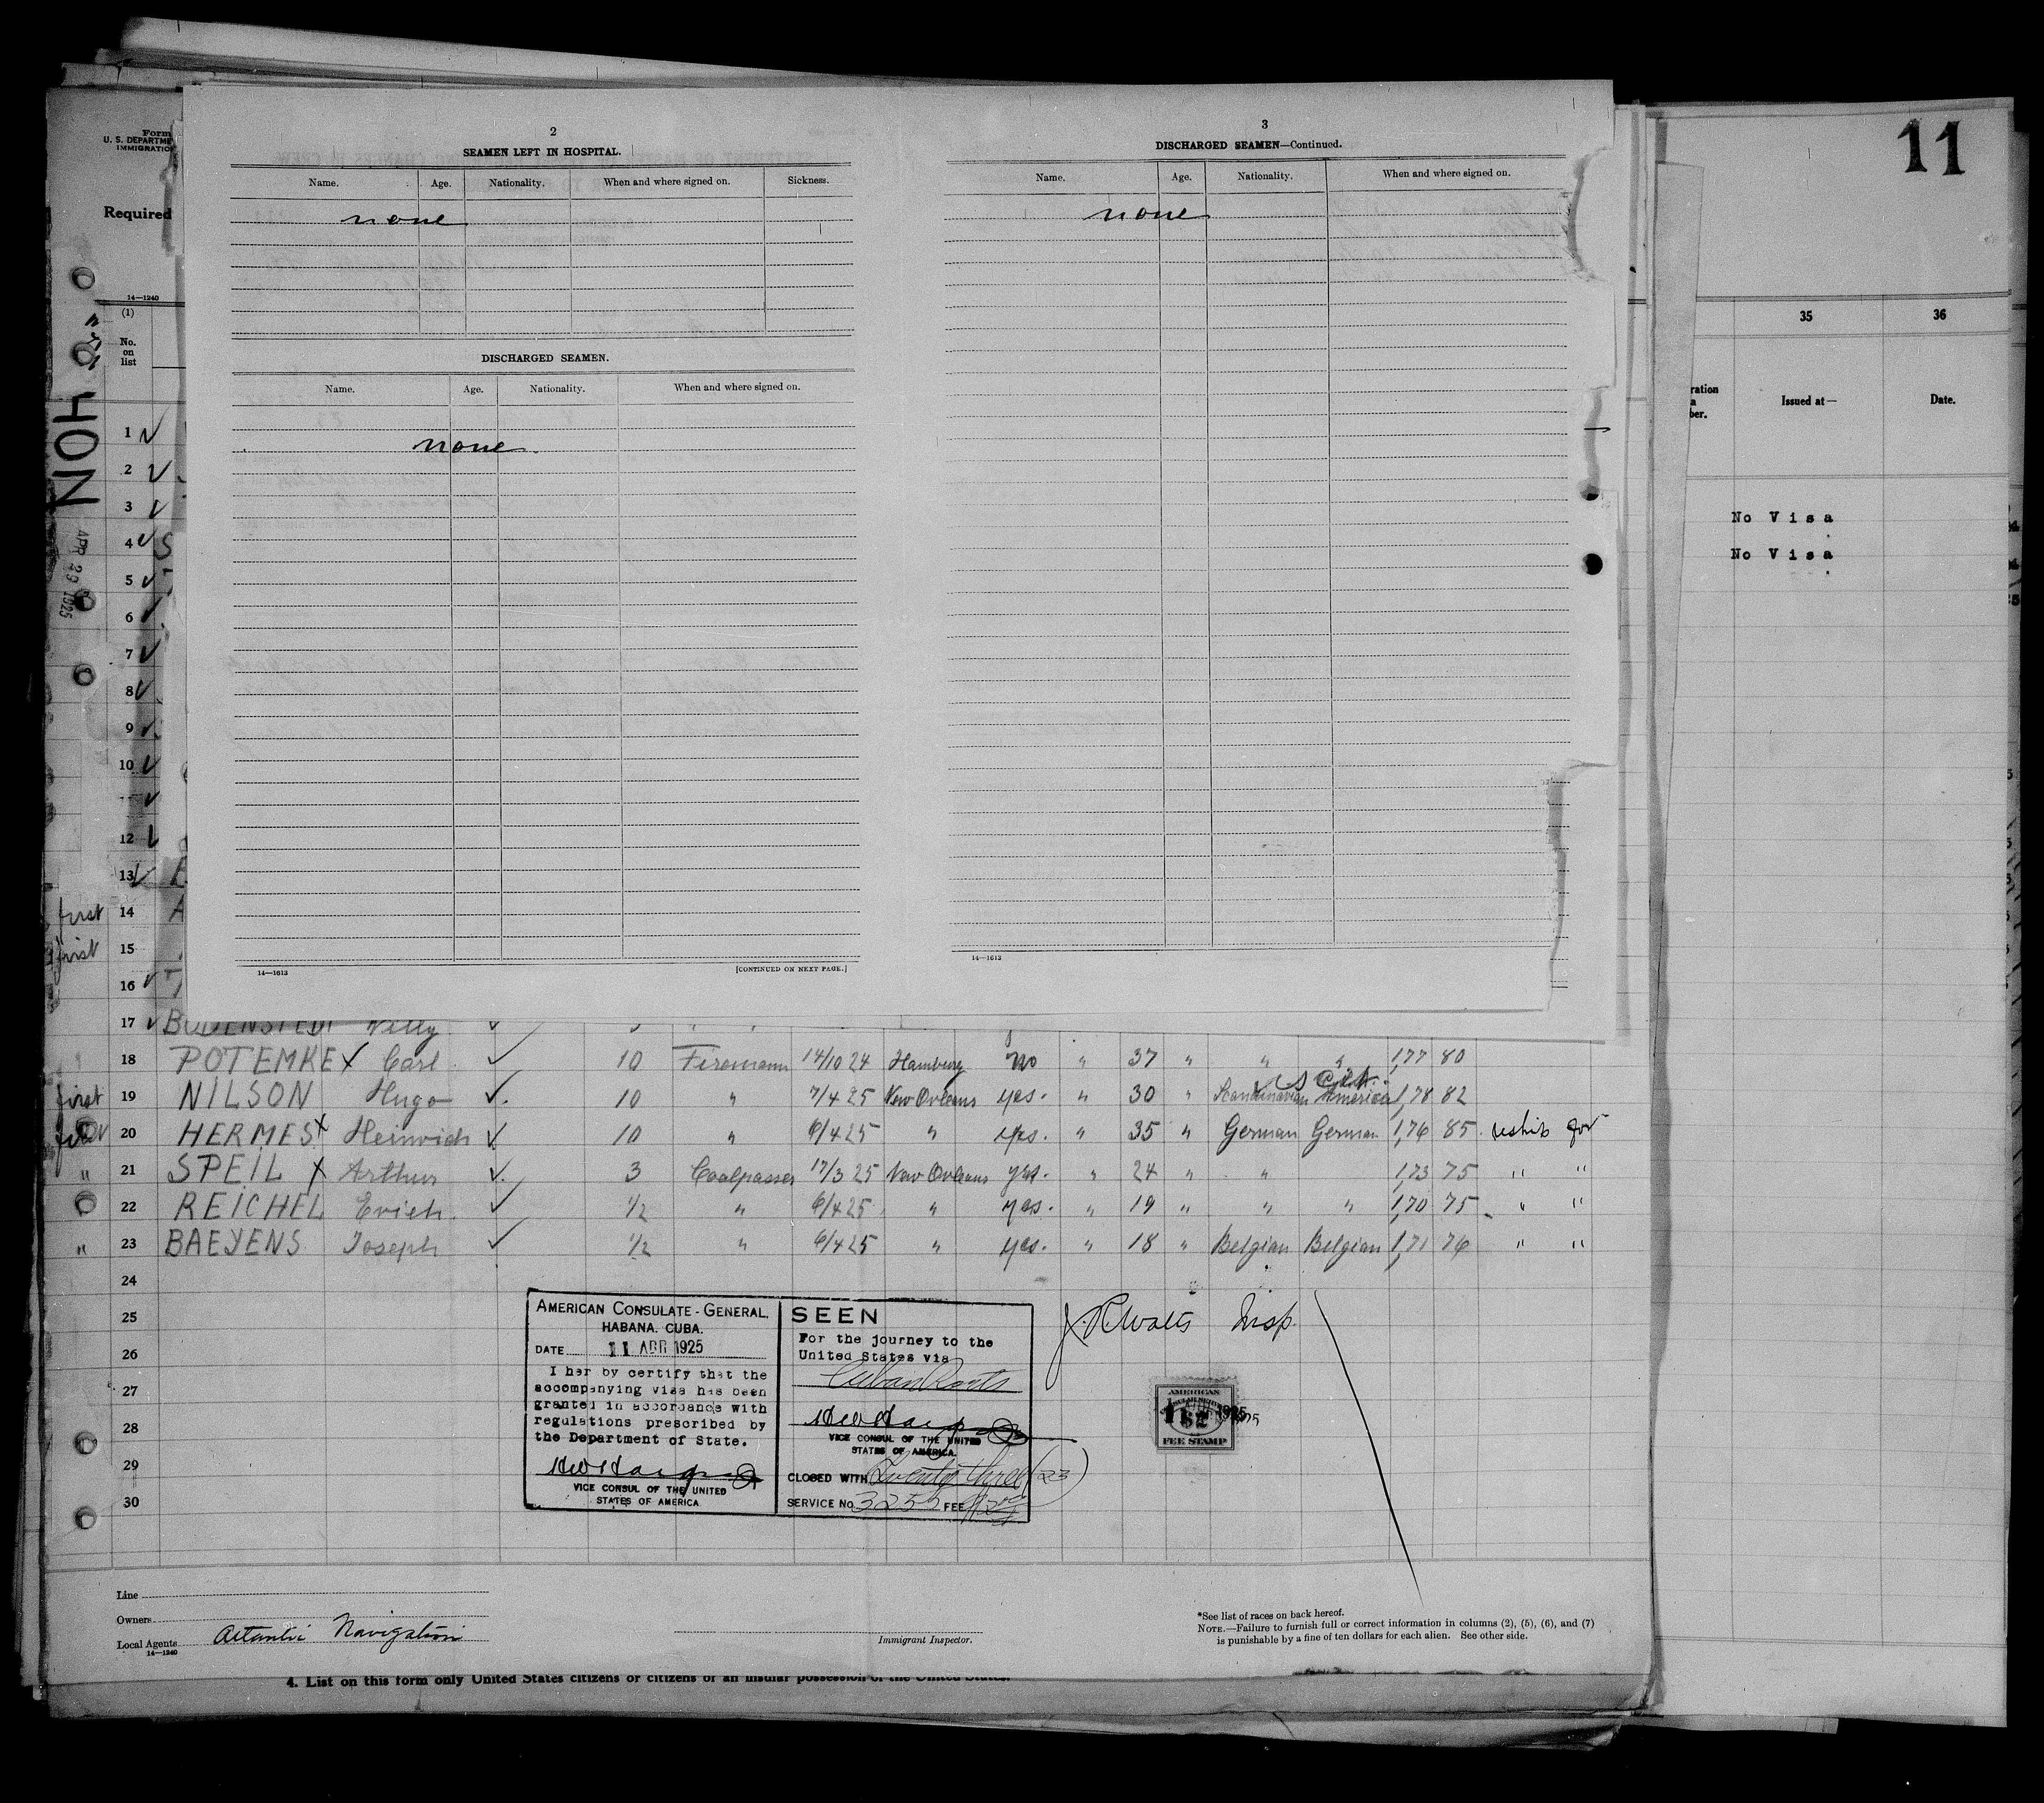 11
Form
U. S. DEPARTME
IMMIGRATIO
Required
14—1240
(1)
No.
on
list
NOH
APR 29 1925
2
SEAMEN LEFT IN HOSPITAL.
Name. Age. Nationality. When and where signed on. Sickness.
none
DISCHARGED SEAMEN.
Name. Age. Nationality. When and where signed on.
none
14—1613 [CONTINUED ON NEXT PAGE.]
3
DISCHARGED SEAMEN—Continued.
Name. Age. Nationality. When and where signed on.
none
14—1613
35 36
ration
a
ber.
Issued at— Date.
No Visa
No Visa
1
2
3
4 S
5
6
7
8
9
10
12
13
first 14 A
first 15
16
17 BODENSTEDT Willy
18 POTEMKE x Carl 10 Firemann 14/10 24 Hamburg no " 37 " " " 1,77 80
U S Cit.
first 19 NILSON Hugo 10 " 7/4 25 New Orleans yes. " 30 " Scandinavian America 1,78 82
20 HERMES x Heinrich 10 " 6/4 25 " yes. " 35 " German German 1,76 85 reship for
" 21 SPEIL x Arthur 3 Coalpasser 17/3 25 New Orleans yes. " 24 " " 1,73 75 " "
22 REICHEL Erich 1/2 " 6/4 25 " yes. " 19 " " " 1,70 75 " "
" 23 BAEYENS Joseph 1/2 " 6/4 25 " yes. " 18 " Belgian Belgian 1,71 76 " "
24
25
26
27
28
29
30
AMERICAN CONSULATE-GENERAL,
HABANA, CUBA.
DATE 11 APR 1925
I her by certify that the
accompanying visa has been
granted in accordance with
regulations prescribed by
the Department of State.
VICE CONSUL OF THE UNITED
STATES OF AMERICA
SEEN
For the journey to the
United States via
Cuban Ports
VICE CONSUL OF THE UNITED
STATES OF AMERICA.
CLOSED WITH Twenty three (23)
SERVICE No. 3255 FEE
J. R. Watts Insp.
AMERICAN
1925
FEE STAMP
Line
Owners
Local Agents Atlantic Navigation
14—1240
Immigrant Inspector.
*See list of races on back hereof.
NOTE.—Failure to furnish full or correct information in columns (2), (5), (6), and (7)
is punishable by a fine of ten dollars for each alien. See other side.
4. List on this form only United States citizens or citizens of an insular possession of the United States.